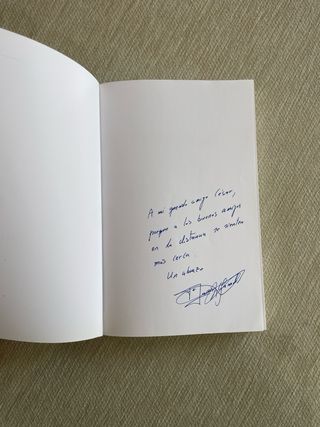 A mi querido amigo César,
porque a los buenos amigos
en la distancia se sienten
más cerca.
Un abrazo